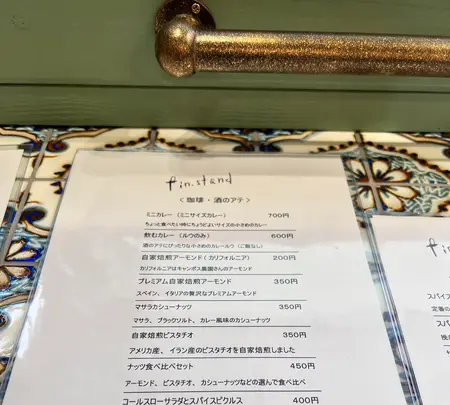 fin.stand
<珈琲・酒のアテ>
ミニカレー(ミニサイズカレー) 700円
ちょっと食べたい時にちょうどよいサイズの小さめのカレー
飲むカレー(ルウのみ) 600円
酒のアテにぴったりな小さめのカレールウ(ご飯なし)
自家焙煎アーモンド(カリフォルニア) 200円
カリフォルニアはキャンポス農園さんのアーモンド
プレミアム自家焙煎アーモンド 350円
スペイン、イタリアの贅沢なプレミアムアーモンド
マサラカシューナッツ 350円
マサラ、ブラックソルト、カレー風味のカシューナッツ
自家焙煎ピスタチオ 350円
アメリカ産、イラン産のピスタチオを自家焙煎しました
ナッツ食べ比べセット 450円
アーモンド、ピスタチオ、カシューナッツなどの選んで食べ比べ
コールスローサラダとスパイスピクルス 400円
fin
スパイス
定番の
スパ